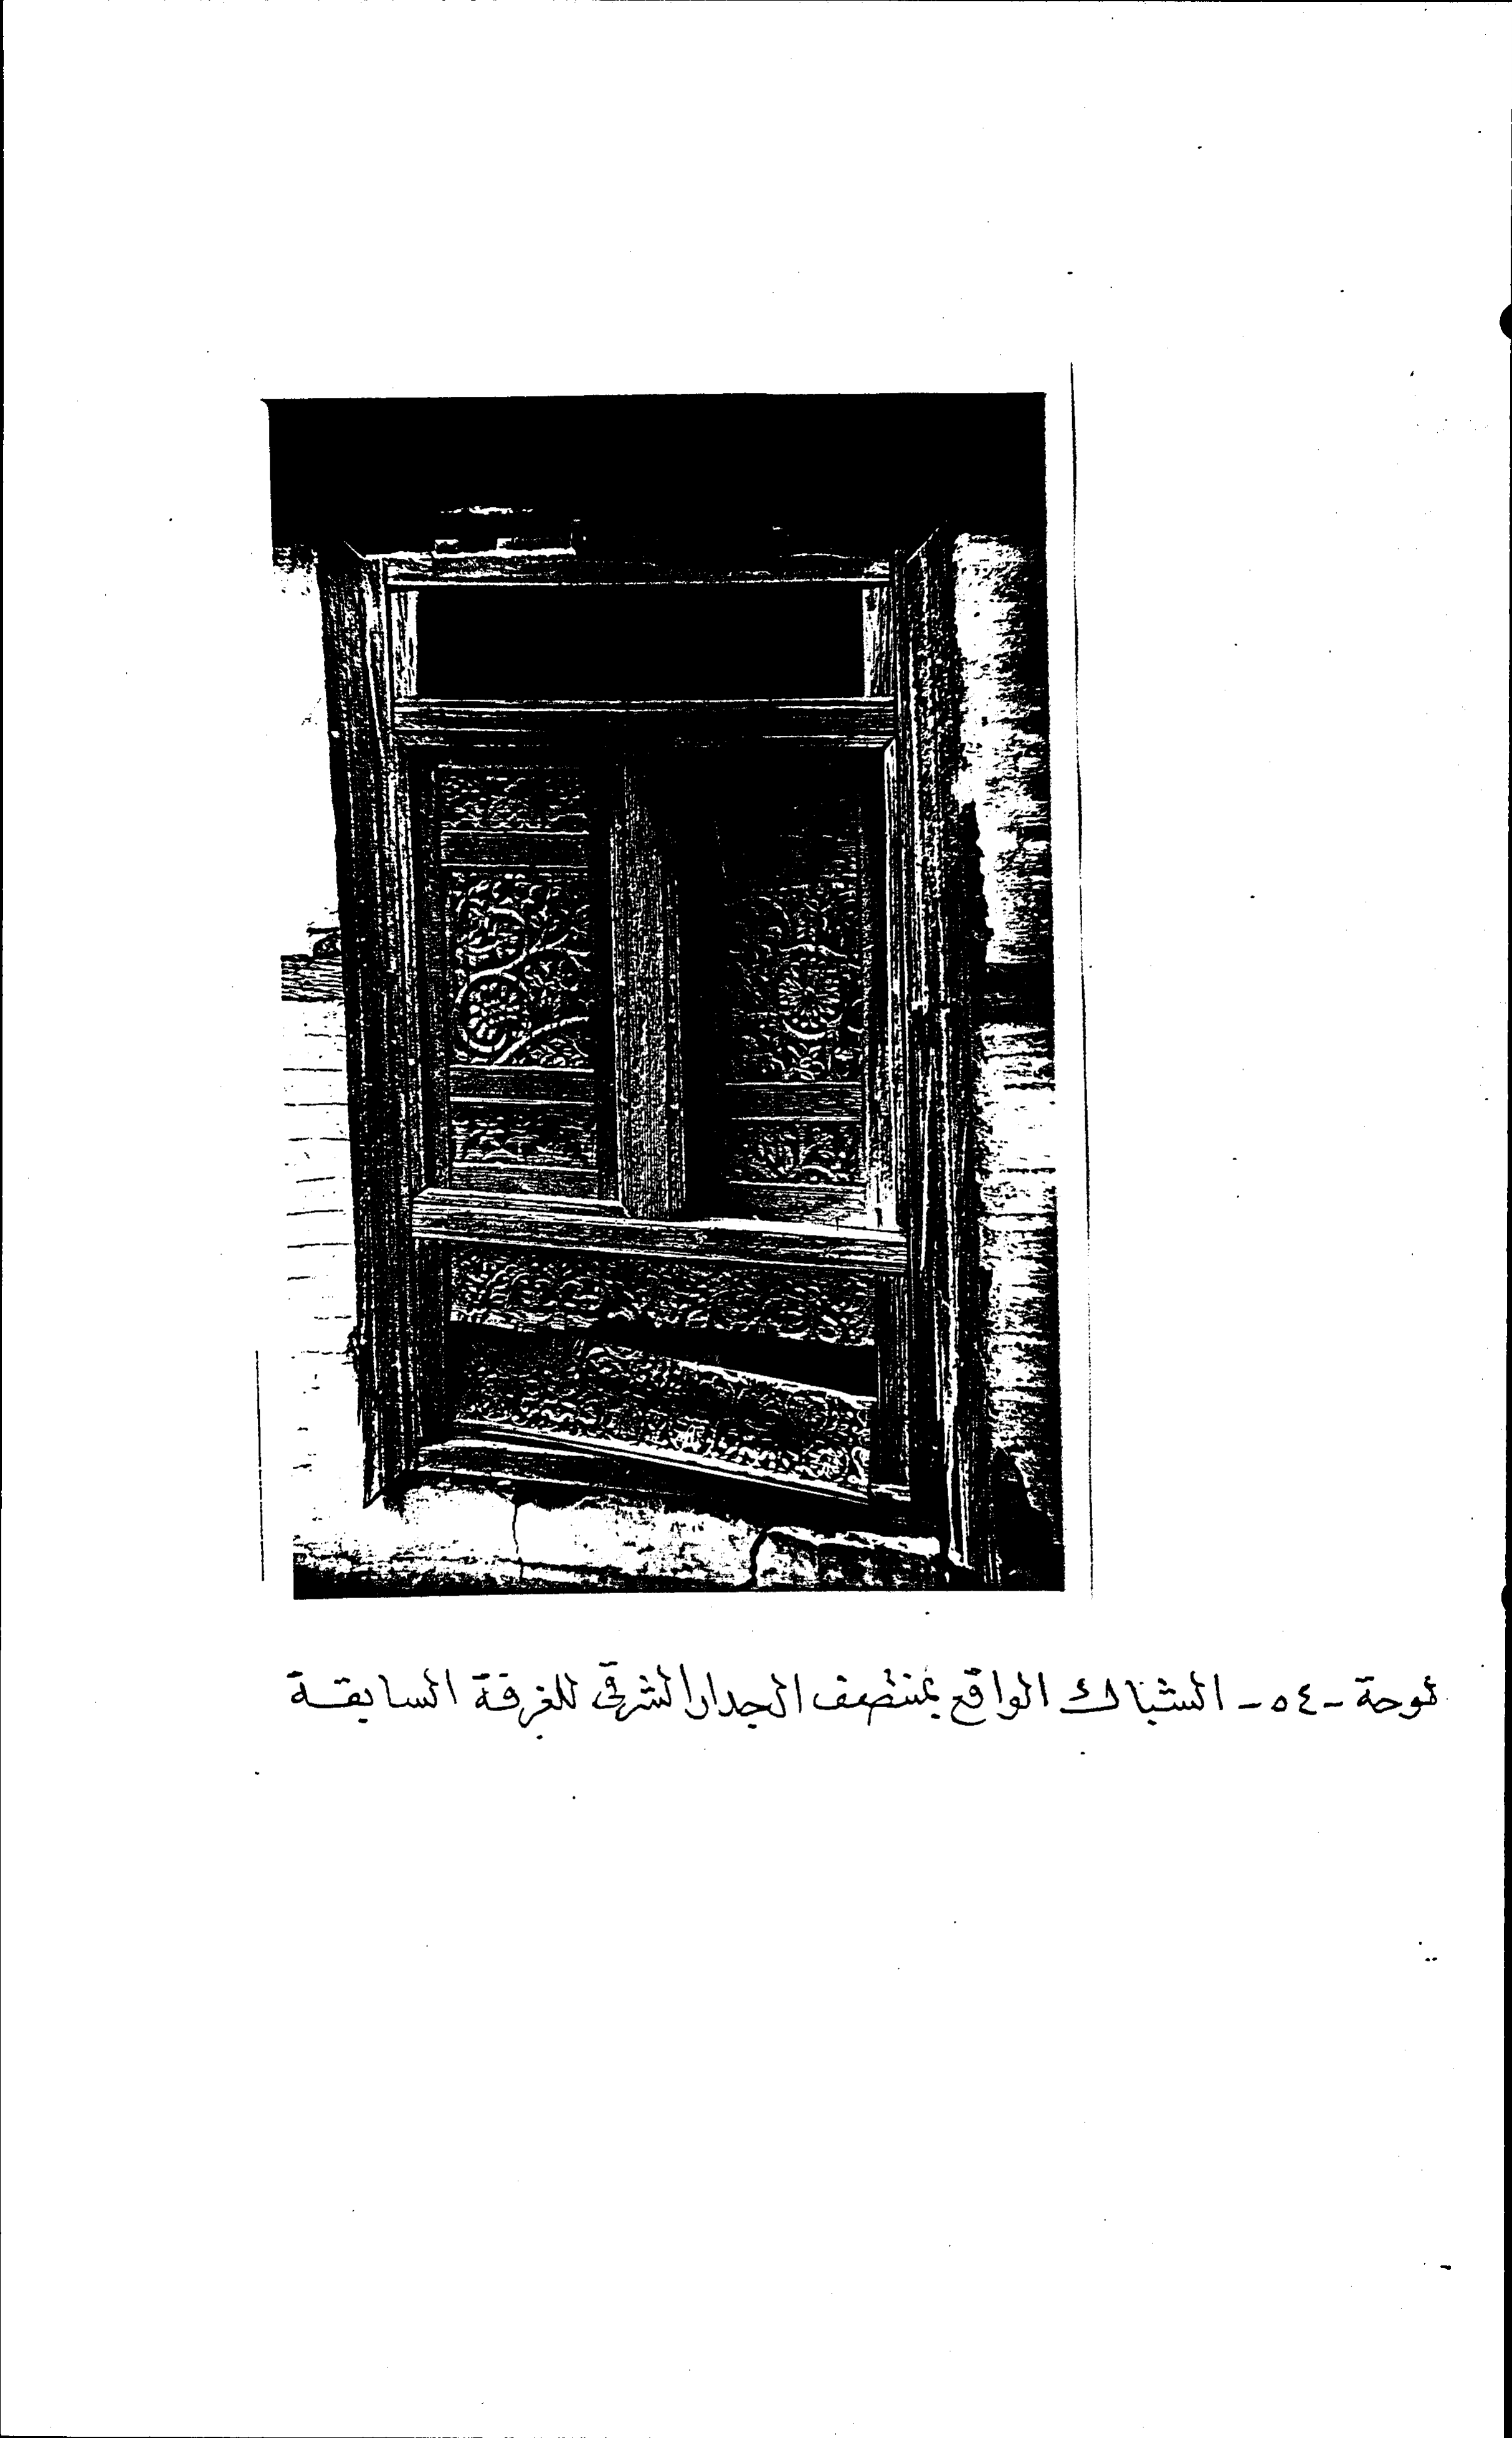 لوحة - ٥٤ - الشباك الواقع بمنتصف الجدار الشرقي للغرفة السابقة